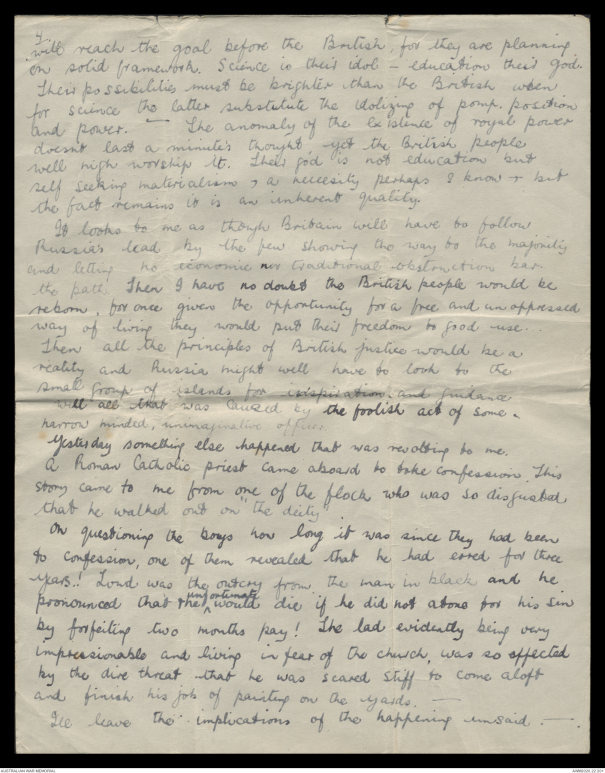 4.
will reach the goal before the British, for they are planning
on solid framework. Science is their idol – education their god.
Their possibilities must be brighter than the British when
for science the latter substitute the idolizing of pomp, position
and power. — The anomaly of the existence of royal power
doesnt last a minute's thought, yet the British people
well nigh worship it. Their god is not education but
self seeking materialism, a necesity perhaps I know – but
the fact remains it is an inherent quality.
It looks to me as though Britain will have to follow
Russia's lead by the few showing the way to the majority
and letting no economic nor traditional obstruction bar
the path. Then I have no doubt the British people would be
reborn, for once given the opportunity for a free and unoppressed
way of living they would put their freedom to good use...
Then all the principles of British justice would be a
reality and Russia might well have to look to the
small group of islands for inspiration and guidance
Well all that was caused by the foolish act of some
narrow minded, unimaginative officer.
Yesterday something else happened that was revolting to me.
A Roman Catholic priest came aboard to take confession. This
story came to me from one of the flock who was so disgusted
that he walked out on "the deity"
On questioning the boys how long it was since they had been
to confession, one of them revealed that he had erred for three
years.! Loud was the outcry from the man in black and he
pronounced that the unfortunate would die if he did not atone for his sin
by forfeiting two months pay! The lad evidently being very
impressionable and living in fear of the church, was so affected
by the dire threat that he was scared stiff to come aloft
and finish his job of painting on the yards. —
Ile leave the implications of the happening unsaid. —.
AUSTRALIAN WAR MEMORIAL